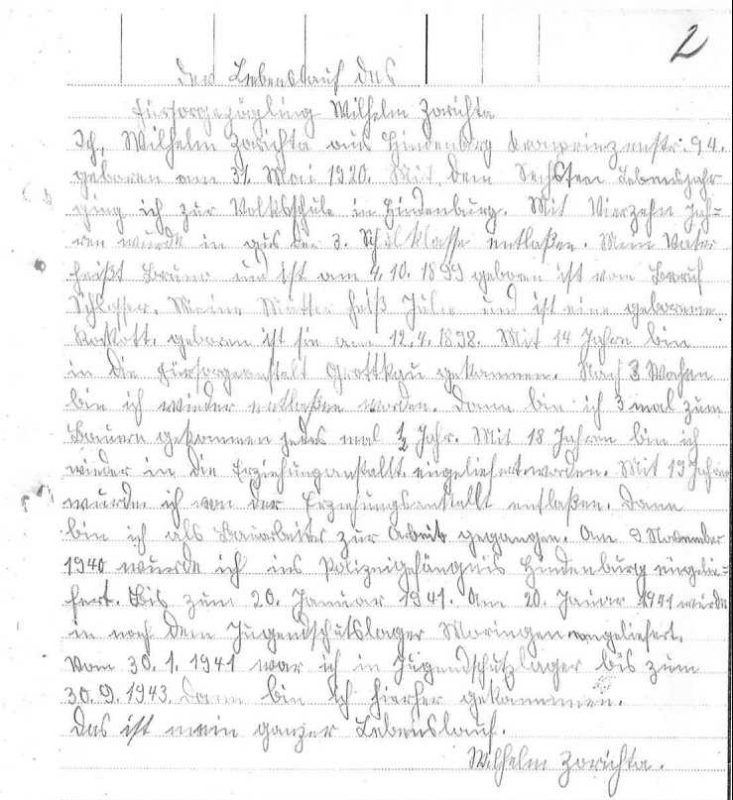 2
Der Lebenslauf des
Fürsorgezögling Wilhelm Zorichta
Ich, Wilhelm Zorichta aus Hindenburg Kronprinzenstr. 94.
geboren am 31. Mai 1920. Mit dem Sechsten Lebensjahr
ging ich zur Volksschule in Hindenburg. Mit Vierzehn Jah=
ren wurde in aus der 3. Schulklasse entlaßen. Mein Vater
heißt Bruno und ist am 4.10.1899 geboren ist vom Beruf
Schlosser. Meine Mutter heiß Julie und ist eine geborene
geboren ist sie am 12.4.1898. Mit 14 Jahre bin
in die Fürsorgeanstalt Grottkau gekommen. Nach 3 Wochen
bin ich wieder entlaßen worden. Dann bin ich 3 mal zum
Bauern gekommen jedes mal ½ Jahr. Mit 18 Jahren bin ich
wieder in die Erziehunganstallt eingeliefert worden. Mit 19 Jahren
wurde ich von der Erziehungsanstallt entlaßen. Dann
bin ich als Bauarbeiter zur Arbeit gegangen. Am 9 November
1940 wurde ich ins Polizeigefängnis Hindenburg eingelie=
fert. Bis zum 20. Januar 1941. Am 20. Januar 1941 wurde
in nach dem Jugendschutslager Moringen eingeliefert.
Vom 30.1.1941 war ich in Jugendschutzlager bis zum
30.9.1943. Dann bin ich hierher gekommen.
Das ist mein ganzer Lebenslauf.
Wilhelm Zorichta.